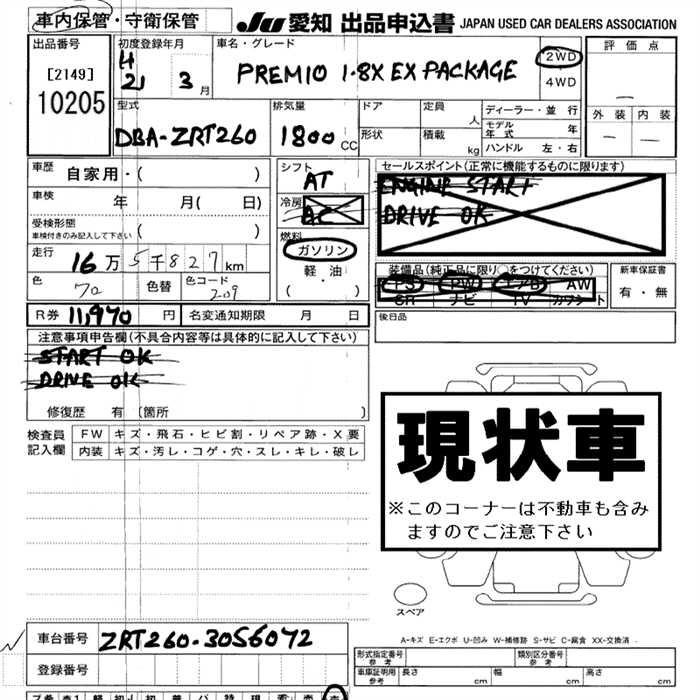 車内保管・守衛保管
JU 愛知 出品申込書 JAPAN USED CAR DEALERS ASSOCIATION
出品番号
[2149]
10205
初度登録年月
H
21 3月
車名・グレード
PREMIO 1.8X EX PACKAGE
2WD
4WD
評価点
外装 内装
— —
型式
DBA-ZRT260
排気量
1800 CC
ドア
定員
人
形状
積載
kg
ディーラー・並行
モデル年式 年
ハンドル 左・右
車歴 自家用・( )
車検 年 月( 日)
受検形態
車検付きのみ記入して下さい ( )
走行 16万5千827km
色 70 色替 色コード 209
シフト
AT
冷房
AC
燃料
ガソリン
軽・油
( ・ )
セールスポイント(正常に機能するものに限ります)
ENGINE START
DRIVE OK
装備品(純正品に限り○をつけてください)
PS PW エアB AW
SR ナビ TV カワシート
新車保証書
有・無
後日品
R券 11,970 円 名変通知期限 月 日
注意事項申告欄(不具合内容等は具体的に記入して下さい)
START OK
DRIVE OK
修復歴 有 (箇所 )
検査員記入欄
FW キズ・飛石・ヒビ割・リペア跡・X要
内装 キズ・汚レ・コゲ・穴・スレ・キレ・破レ
現状車
※このコーナーは不動車も含み
ますのでご注意下さい
スペア
A-キズ E-エクボ U-凹み W-補修跡 S-サビ C-腐食 XX-交換済
車台番号 ZRT260-3056072
登録番号
形式指定番号 参考
類別区分番号 参考
車庫証明用 参考 長さ cm 幅 cm 高さ cm